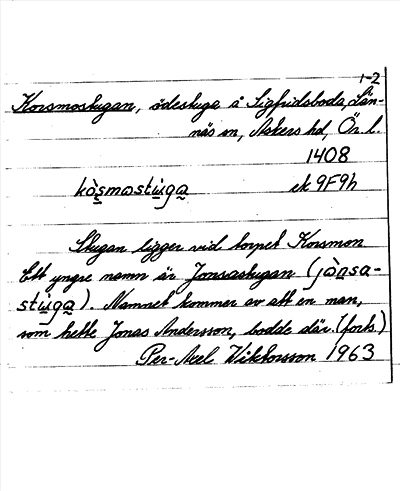 1-2
Korsmostugan, ödestuga å Sigfridsboda, Län-
näs sn, Askers hd, Ör. l.
1408
kòs̱mostu̱ga̱ ek 9F9h
Stugan ligger vid torpet Korsmon
Ett yngre namn är Jonsastugan (jòṉsa-
stu̱ga̱). Namnet kommer av att en man,
som hette Jonas Andersson, bodde där. (forts.)
Per-Axel Wiktorsson 1963